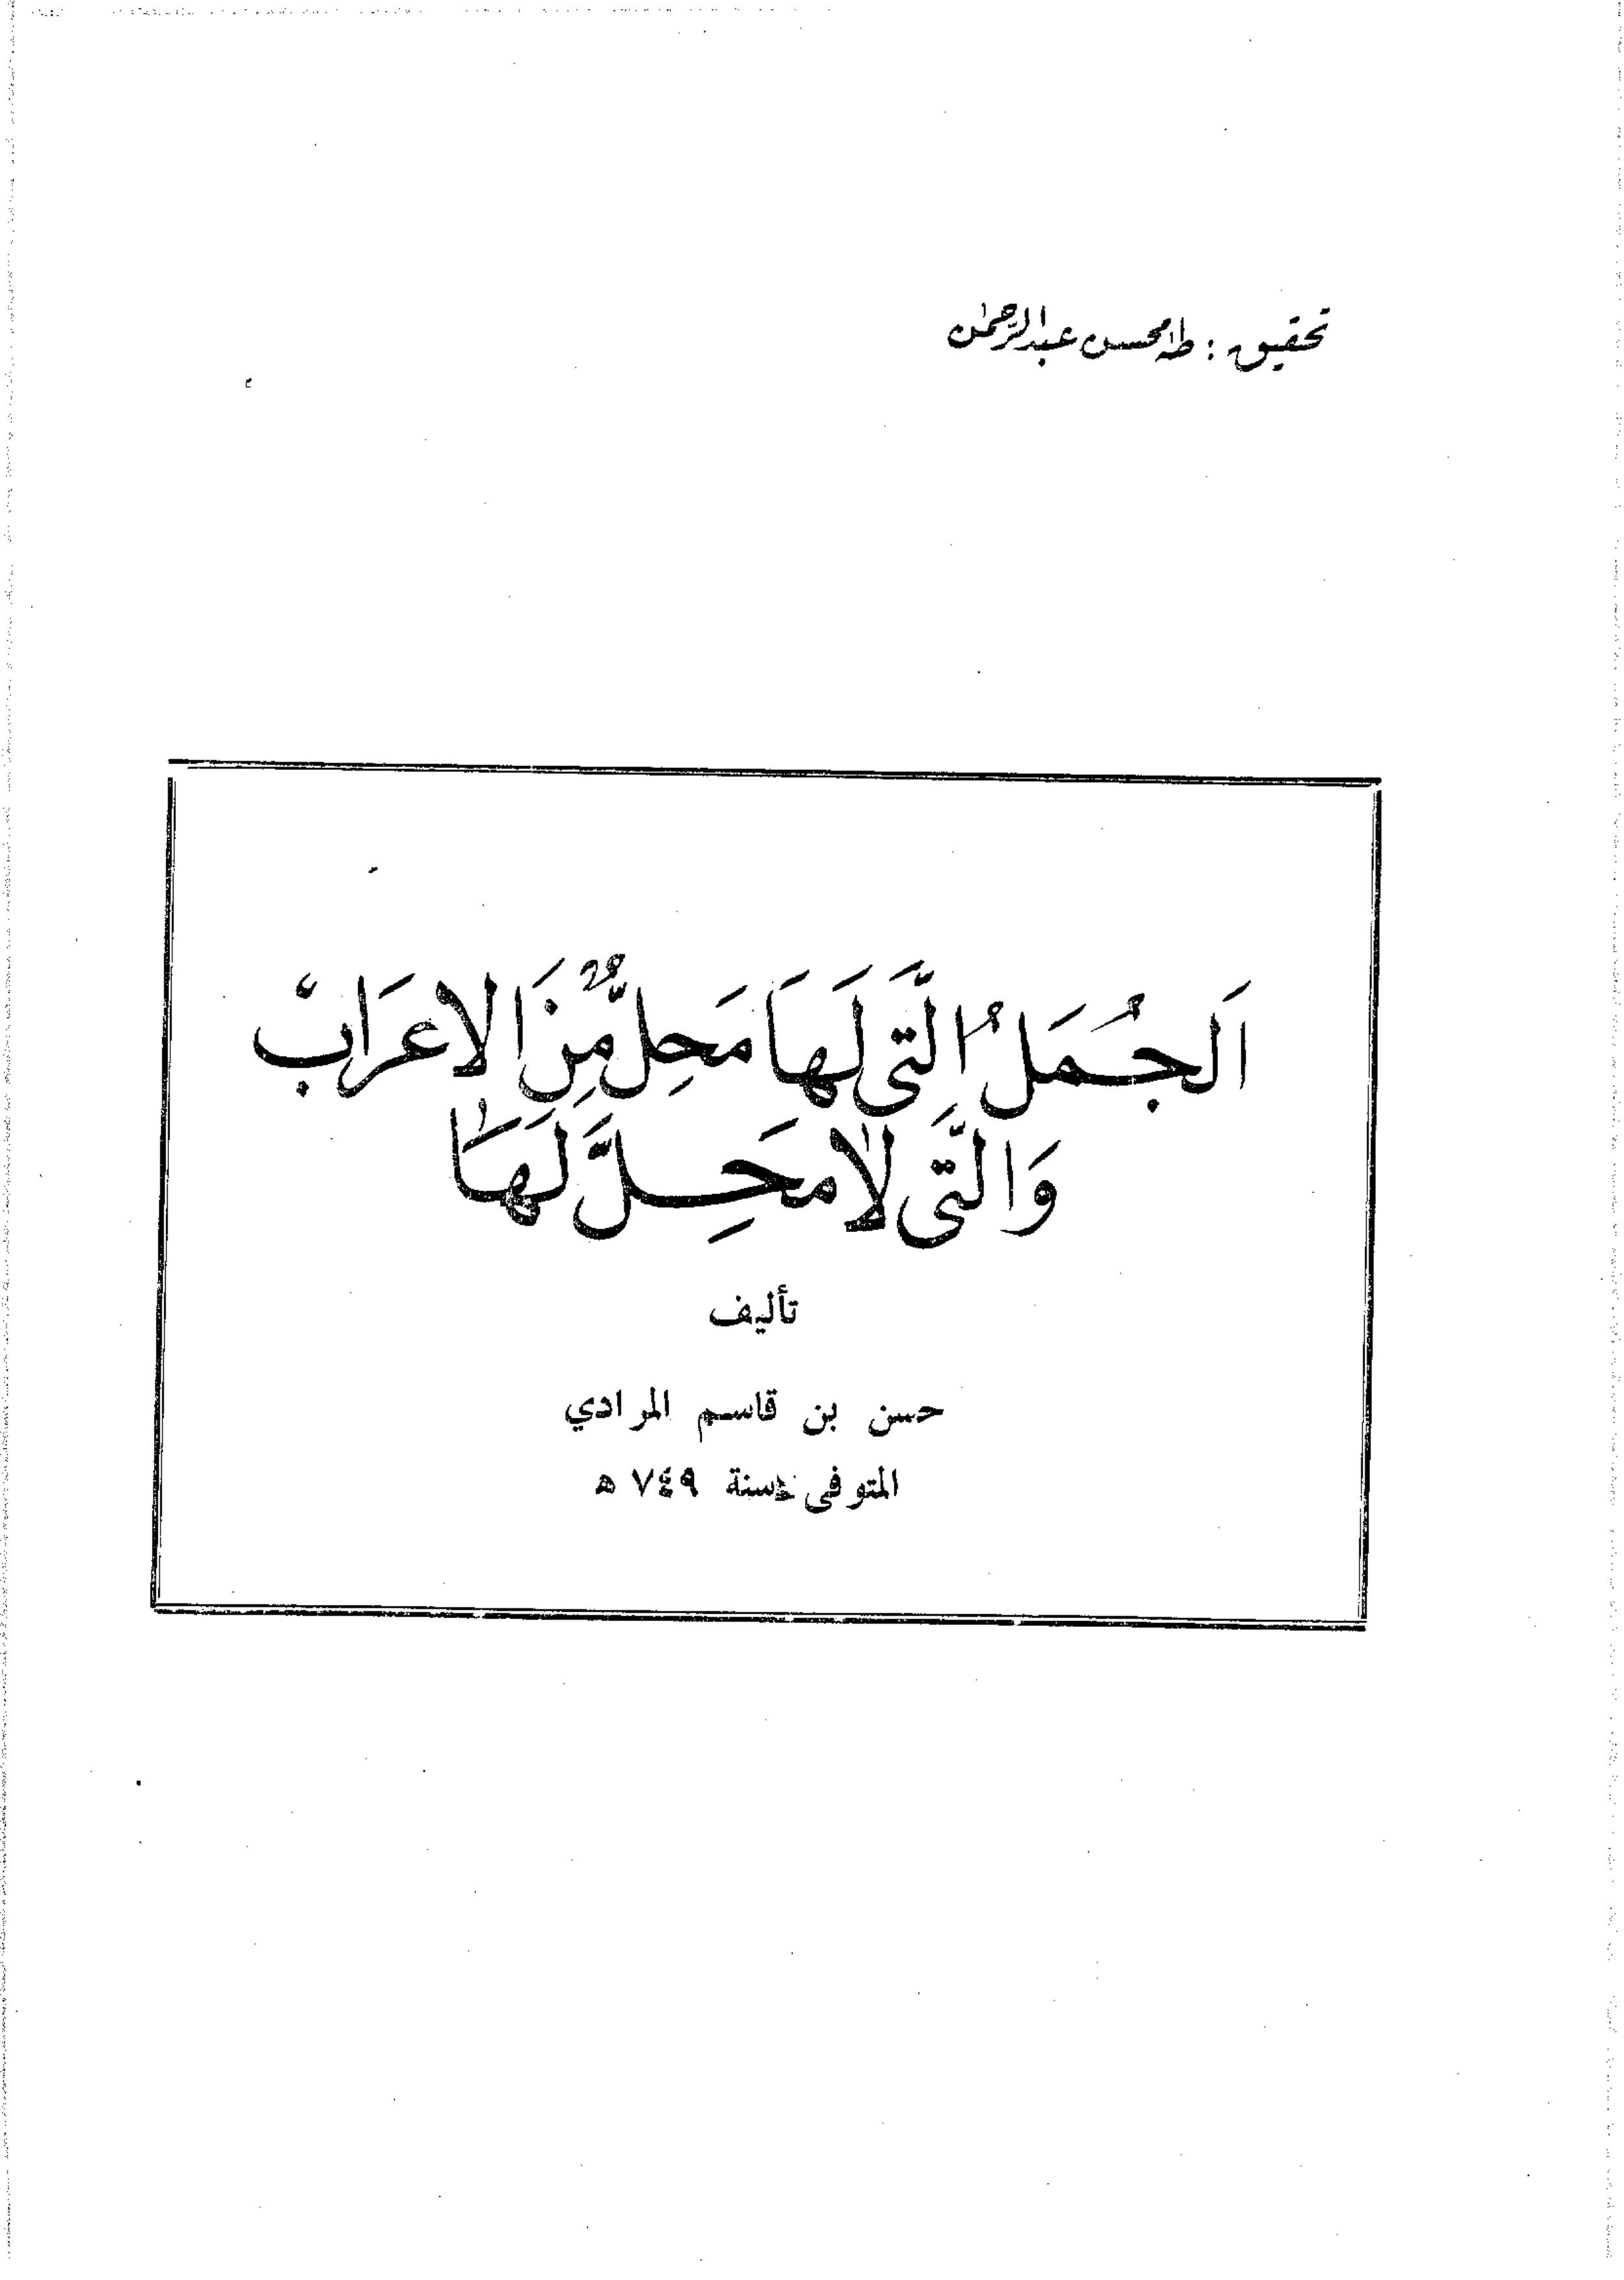 تحقيق : طه محسن عبد الرحمن
اَلجُمَلُ الَّتى لَهَا مَحِلٌّ مِنَ الاعرَاب
وَالَّتى لا مَحِلَّ لَهَا
تأليف
حسن بن قاسم المرادي
المتوفى سنة ٧٤٩ ه